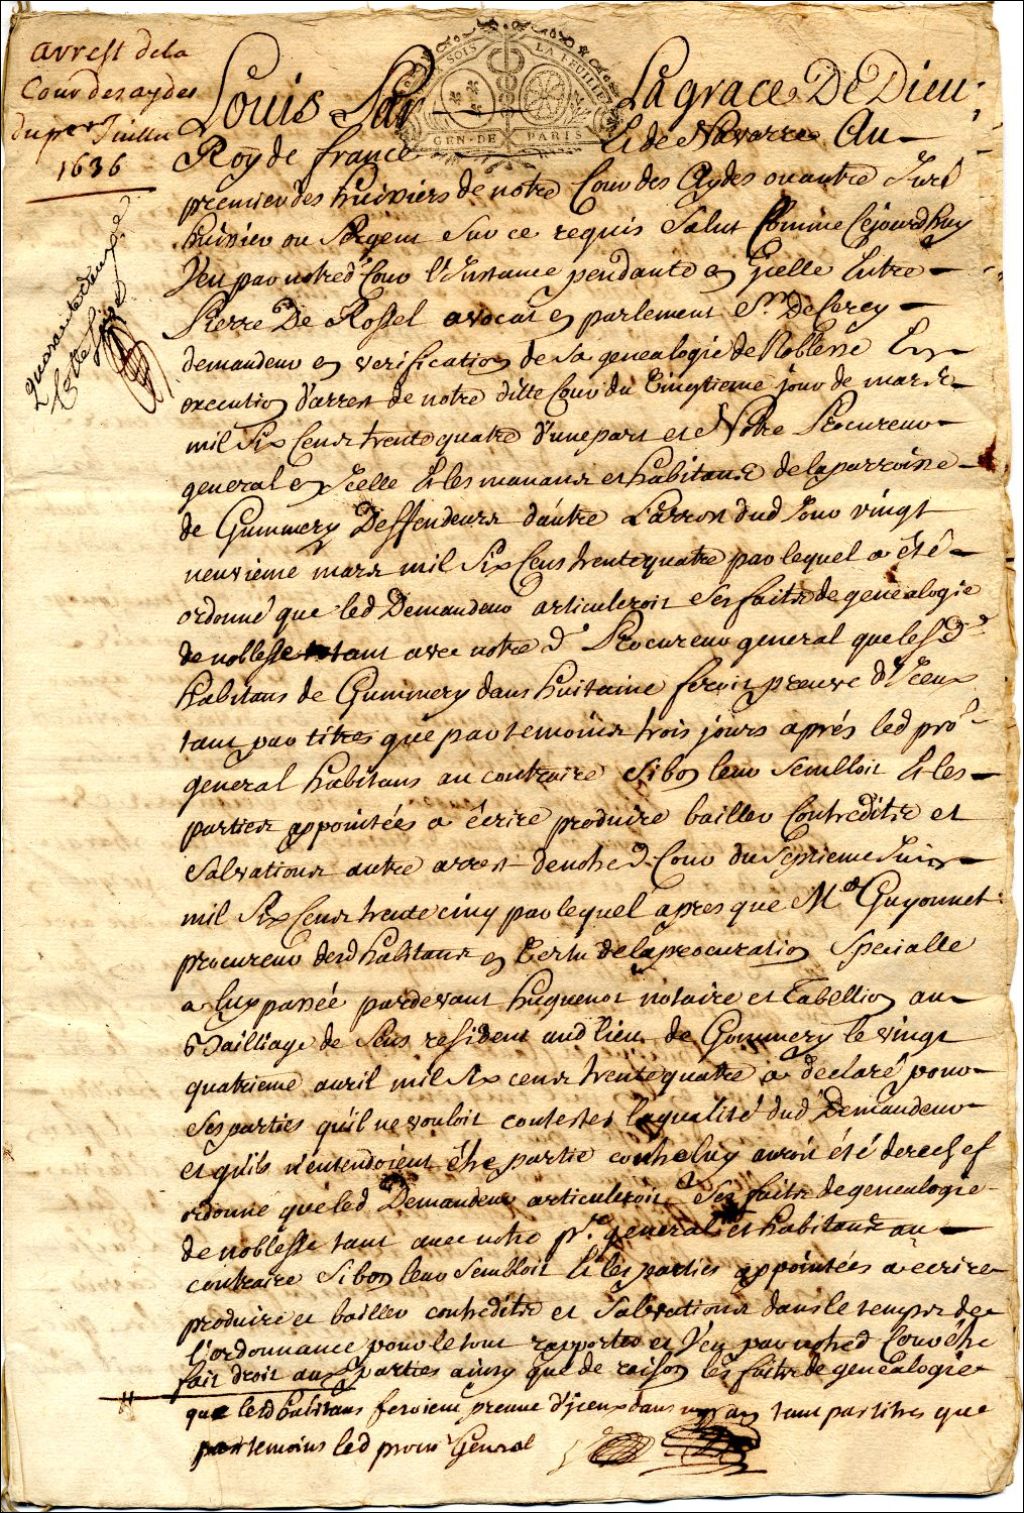 arrest de la
Cour des aydes
du per Juillet
1636
quarante deux
SOIS LA FEUILLE
GEN. DE PARIS
Louis Par La grace De Dieu
Roy de france Et de Navarre Au
premier des huissiers de notre Cour des Aydes ou autre
huissier ou Sergent sur ce requis Salut Comme Cejourdhuy
Veu par notred Cour l'Instance pendante en Icelle Entre
Pierre De Rossel avocat en parlement Sr. De Cercy
demandeur en verification de sa genealogie de Noblesse En
execution d'arrest de notre ditte Cour du Vingtieme jour de mars
mil Six Cens trente quatre d'une part et Notre Procureur
general en Icelle Et les manans et habitans de la parroisse
de Gummery Deffendeurs d'autre L'arrest dud Jour vingt
neuvieme mars mil Six Cens trente quatre par lequel a été
ordonné que led Demandeur articuleroit Ses faits de genealogie
de noblesse tant avec notre d. Procureur general que lesd
habitans de Gummery dans huitaine feroit preuve d'Iceux
tant par titres que par temoins trois jours aprés led pro.
general habitans au contraire Si bon leur Sembloit Et les
parties appointées a écrire produire bailler Contredits et
Salvations autre arrest de notre d. Cour du Septieme Juin
mil Six Cens trente cinq par lequel apres que Me Guyonnet
procureur desd habitans en Vertu de la procuration Specialle
a luy passée pardevant huguenot notaire et Tabellion au
Bailliage de Sens resident aud lieu de Gommery le vingt
quatrieme avril mil Six cens trente quatre a declaré pour
Ses parties qu'il ne vouloit contester la qualité dud Demandeur
et qu'ils n'entendoient étre partie contre luy auroit été derechef
ordonné que led Demandeur articuleroit Ses faits de genealogie
de noblesse tant avec notre pr. general et habitans au
contraire Si bon leur Sembloit Et les parties appointées a ecrire
produire et bailler contredits et Salvations dans le temps de
l'ordonnance pour le tout rapporté et Veu par notred Cour étre
fait droit aux parties ainsy que de raison les faits de genealogie
que lesd habitans feroient preuve d'iceux dans un tant par titres que
par temoins led procur General